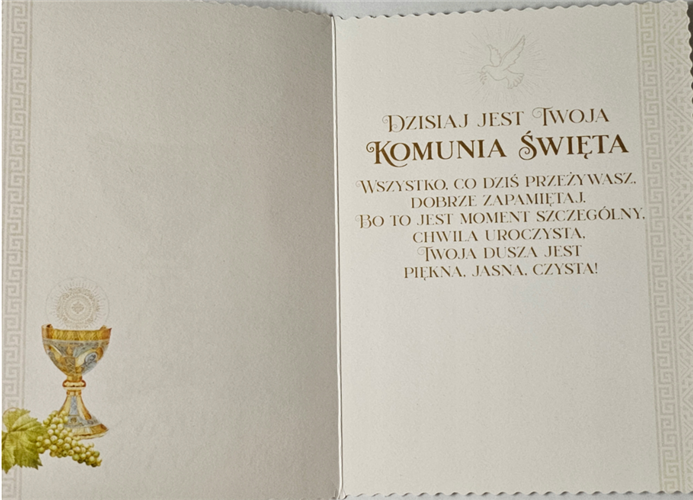 Dzisiaj jest Twoja
Komunia Święta
Wszystko, co dziś przeżywasz,
dobrze zapamiętaj.
Bo to jest moment szczególny,
chwila uroczysta,
Twoja dusza jest
piękna, jasna, czysta!